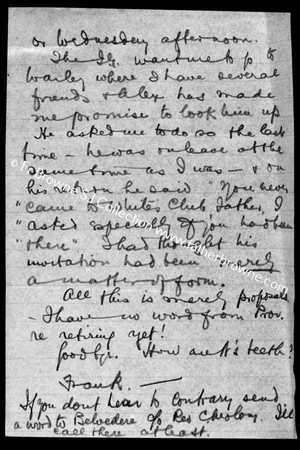 or Wednesday afternoon.
The I.G. want me to go to
where I have several
friends & Alex has made
me promise to look him up
He asked me to do so the last
time - he was on leave at the
same time as I was - & on
his return he said "You never
"came to Club, Father, I
"asked especially if you had been
"there". I had thought his
invitation had been merely
a matter of form.
All this is merely proposals
- I have no word from Prov.
re retiring yet!
Goodbye. How are N's teeth?
Frank. -
If you don't hear to contrary send
a word to Belvedere c/o Rev I'll
call there at least.